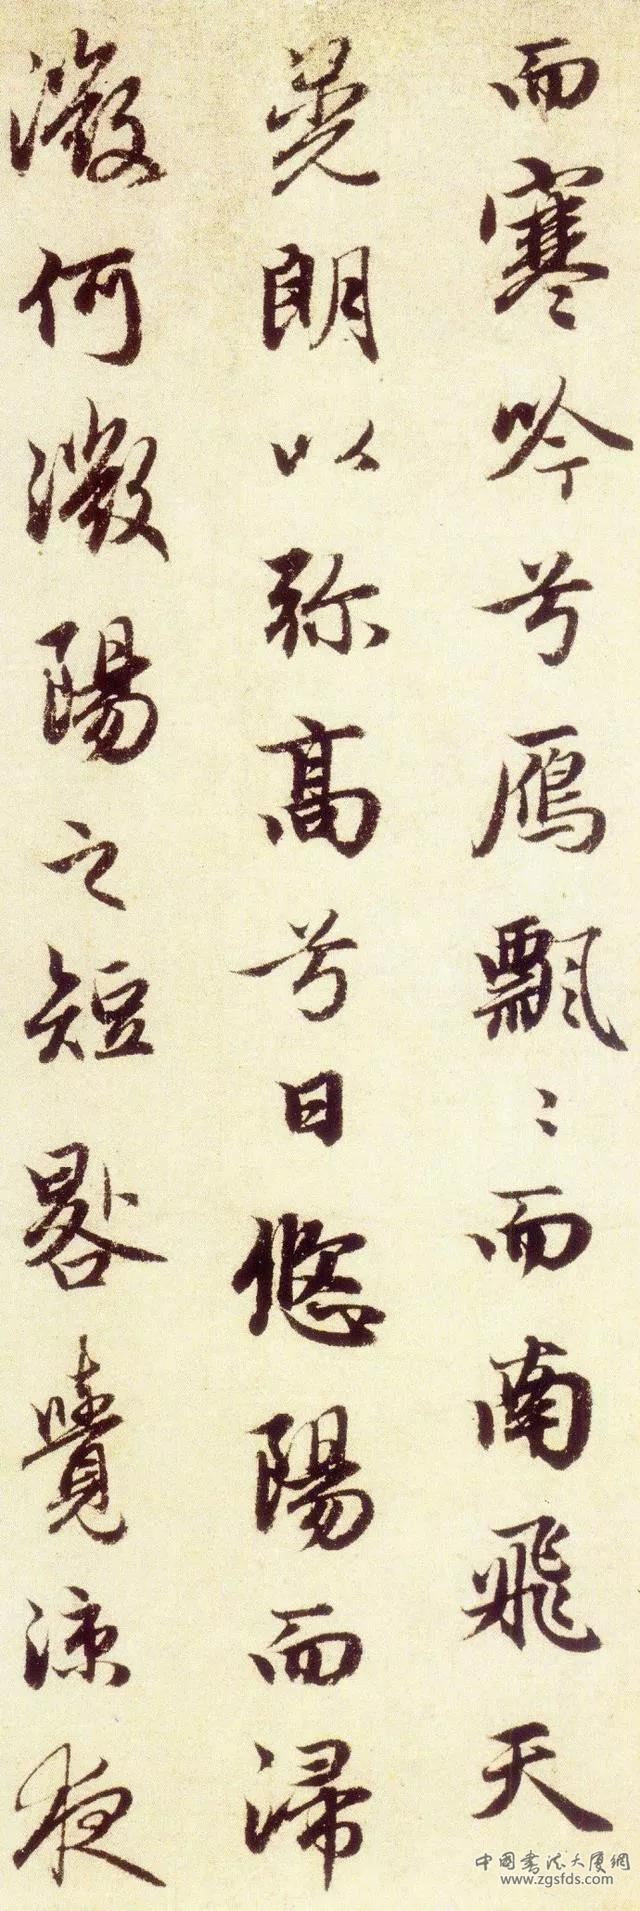 而寒吟兮鴈飄〻而南飛天
晃朗以弥高兮日悠陽而浸
微何微陽之短晷覺涼夜
中國書法大厦網
www.zgsfds.com